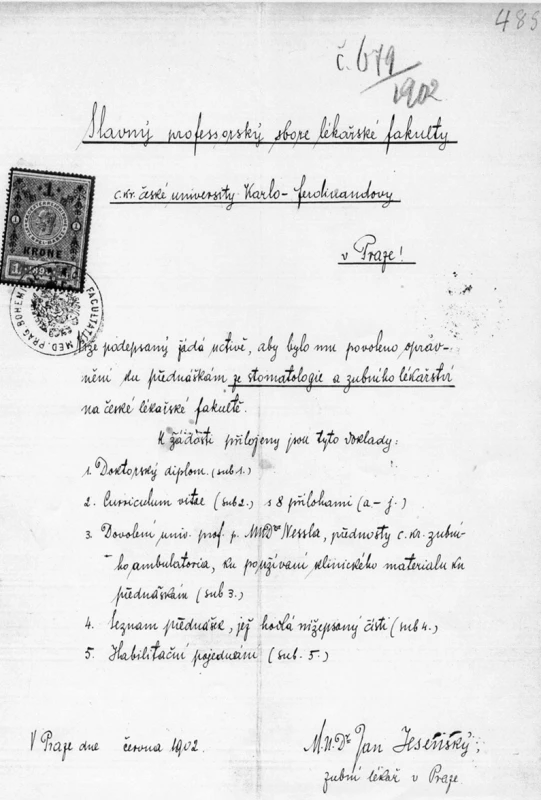 485
č. 679/1902
Slavný professorský sbore lékařské fakulty
c. kr. české university Karlo-Ferdinandovy
v Praze!
1
KRONE
1 1898
MED. PRAG. BOHEM. FACULTATIS
Níže podepsaný žádá uctivě, aby bylo mu povoleno opráv-
nění ku přednáškám ze stomatologie a zubního lékařství
na české lékařské fakultě.
K žádosti přiloženy jsou tyto doklady:
1. Doktorský diplom. (sub 1.)
2. Curriculum vitae (sub 2.) s 8 přílohami (a-j.)
3. Dovolení univ. prof. p. MUDra Nessla, přednosty c. kr. zubní-
ho ambulatoria, ku používání klinického materialu ku
přednáškám (sub 3.)
4. Seznam přednášek, jež hodlá nížepsaný čísti (sub 4.)
5. Habilitační pojednání (sub. 5.)
V Praze dne června 1902.
M.U.Dr. Jan Jesenský,
zubní lékař v Praze